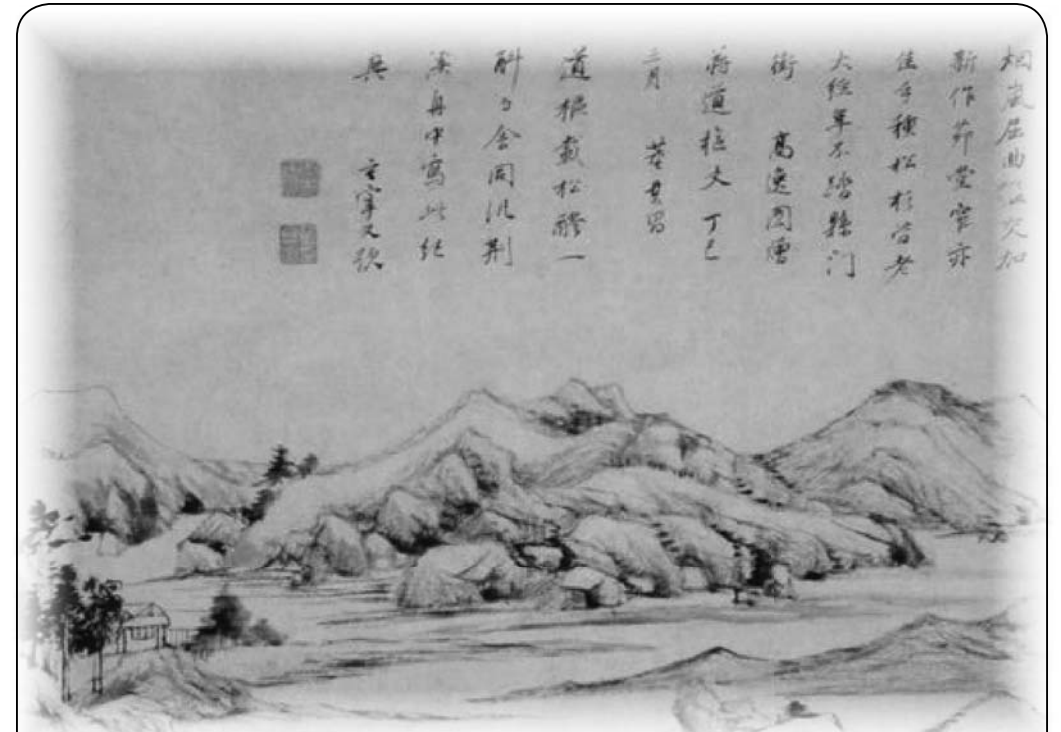 烟嵐屈曲交加
新作茆堂窄亦
佳手種松杉皆老
大經年不踏縣門
街 高逸圖贈
蔣道樞丈 丁巳
三月 董其昌
道樞載松醪一
斛与余同汎荊
溪舟中寫此紀
興 玄宰又識